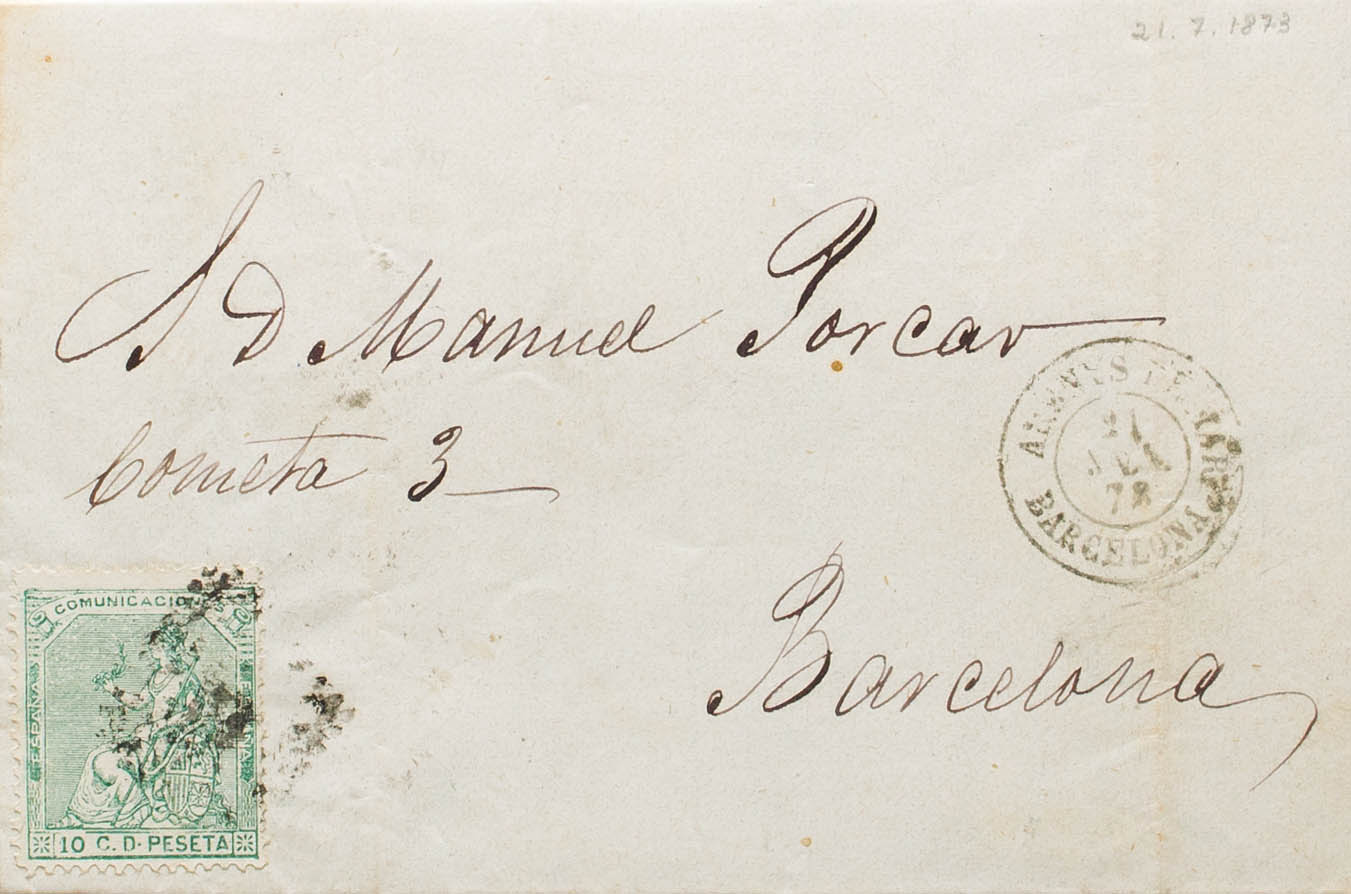 21. 7. 1873
S D Manuel Porcar
Cometa 3
ARENYS DE MAR
21
JUL
73
BARCELONA
Barcelona
COMUNICACIONES
ESPAÑA
ESPAÑA
10 C. D. PESETA